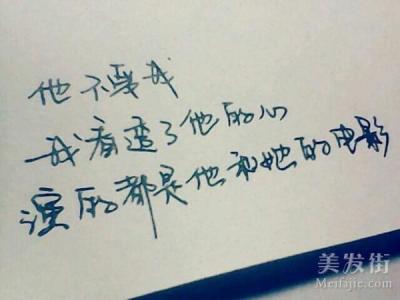 他不爱我
我看透了他的心
演的都是他和她的电影
美发街
Meifajie.com